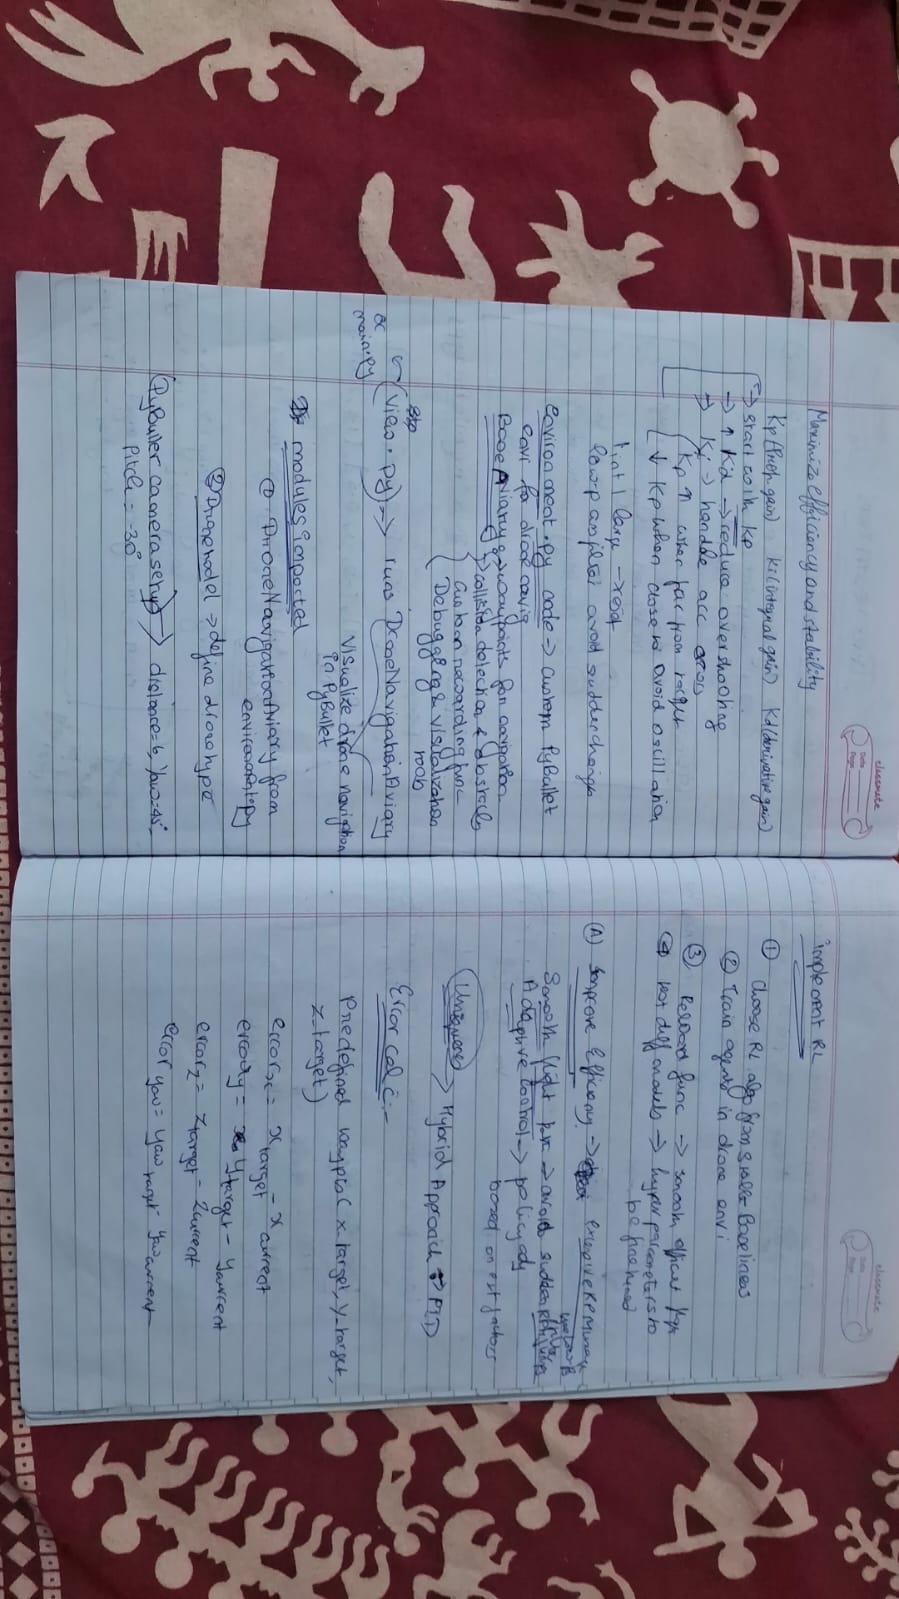 classmate
Date
Page
Maximize efficiency and stability
Kp (Prop. gain) Ki (integral gain) Kd (derivative gain)
→ start with Kp
→ ↑ Kd → reduce overshooting
→ Ki → handle acc
Kp ↑ when far from target
↓ Kp when close to avoid oscillation
low-pass filter avoid sudden
environment.py code → custom PyBullet
envi for drone
BaseAviary → waypoints for
collision detection & obstacles
custom rewarding func
Debugging & Visualization
tools
(view.py) → runs DroneNavigationAviary
main.py
Visualize drone navigation
in PyBullet
modules imported
① DroneNavigationAviary from
environment.py
② Dronemodel → define drone type
(PyBullet camera setup) → distance = 6, yaw = 45°,
Pitch = -30°
classmate
Date
Page
implement RL
① Choose RL algo from Stable Baselines
② Train agent in drone envi
③ Reward func → smooth, efficient
④ test diff models → hyperparameters to
be finetuned
(A) Efficiency →
Smooth flight → avoid sudden
Adaptive control → policy adj
based on ext factors
→ Hybrid Approach → PID
Error calc:-
Predefined waypts (x-target, y-target,
z-target)
error x = x target - x current
error y = y target - y current
error z = z target - z current
error yaw = yaw target - yaw current